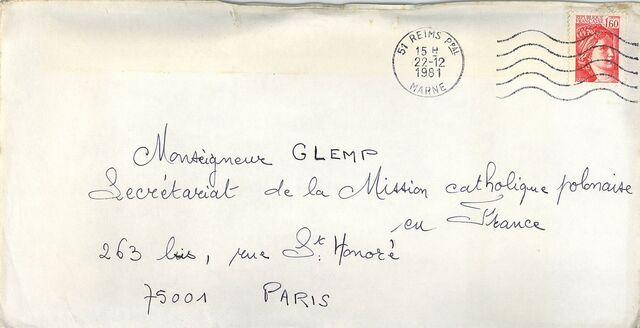 51 REIMS PPAL
15 H
22-12
1981
MARNE
1,60
Monseigneur GLEMP
Secrétariat de la Mission catholique polonaise
en France
263 bis, rue St. Honoré
75001 PARIS